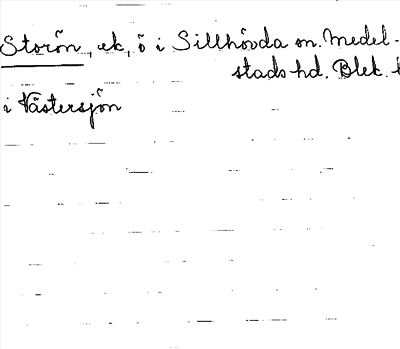 Storön, ek, ö i Sillhövda sn. Medel-
stads hd. Blek.
i Västersjön